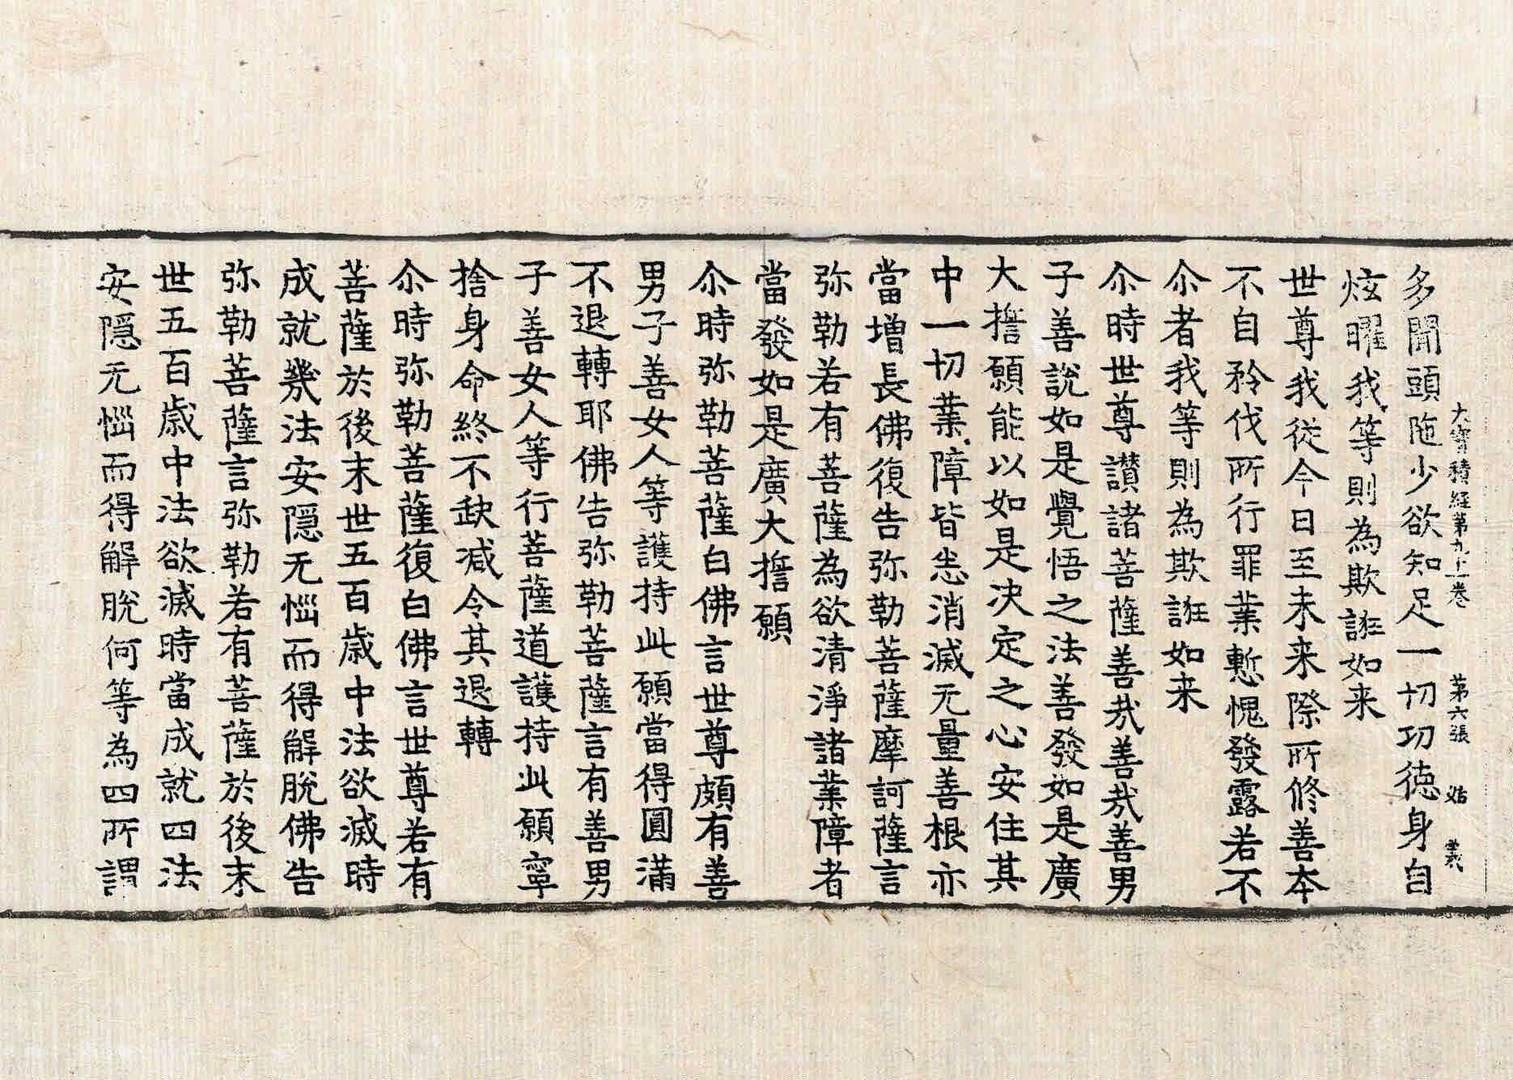 大寶積經第九十一卷　第六張　始　義
多聞頭陁少欲知足一切功德身自
炫曜我等則為欺誑如来
世尊我從今日至未来際所修善夲
不自矜伐所行罪業慙愧發露若不
尒者我等則為欺誑如来
尒時世尊讃諸菩薩善㢤善㢤善男
子善說如是覺悟之法善發如是廣
大擔願能以如是决定之心安住其
中一切業障皆悉消滅无量善根亦
當增長佛復告弥勒菩薩摩訶薩言
弥勒若有菩薩為欲清淨諸業障者
當發如是廣大擔願
尒時弥勒菩薩白佛言世尊頗有善
男子善女人等護持此願當得圓滿
不退轉耶佛告弥勒菩薩言有善男
子善女人等行菩薩道護持此願寧
捨身命終不缺减令其退轉
尒時弥勒菩薩復白佛言世尊若有
菩薩於後末世五百歲中法欲滅時
成就幾法安隱无惱而得解脫佛告
弥勒菩薩言弥勒若有菩薩於後末
世五百歲中法欲滅時當成就四法
安隱无惱而得解脫何等為四所謂